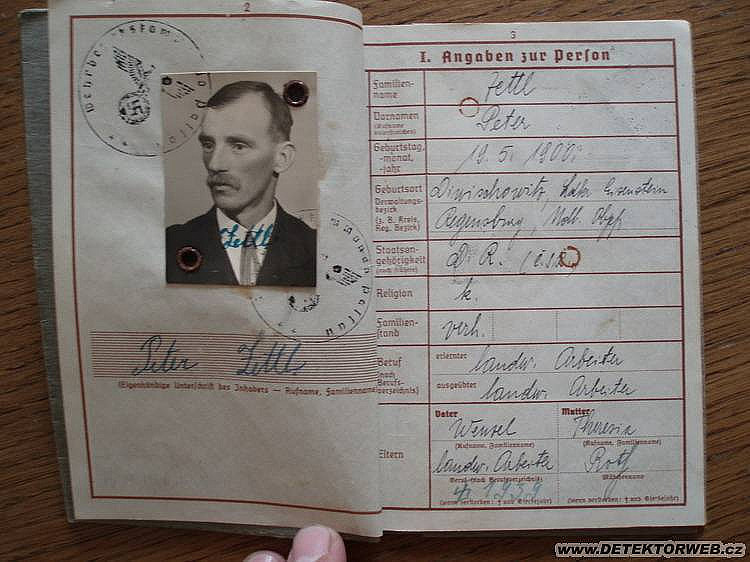 2
Zettl
Peter Zettl
(Eigenhändige Unterschrift des Inhabers — Rufname, Familienname)
3
I. Angaben zur Person
Familien-
name
Zettl
Vornamen
(Rufname
unterstreichen)
Peter
Geburtstag,
-monat,
-jahr
19. 5. 1900.
Geburtsort
Verwaltungs-
bezirk
(z. B. Kreis,
Reg. Bezirk)
Eisenstein
Regensburg
Staatsan-
gehörigkeit
(auch frühere)
D. R.
Religion
k.
Familien-
stand
verh.
Beruf
(nach
Berufs-
verzeichnis)
erlernter
landw. Arbeiter
ausgeübter
landw. Arbeiter
Eltern
Vater
Wenzel
(Rufname, Familienname)
landw. Arbeiter
(Beruf nach Berufsverzeichnis)
1939
(wenn verstorben: † und Sterbejahr)
Mutter
Theresia
(Rufname, Familienname)
Roth
Mädchenname
(wenn verstorben: † und Sterbejahr)
www.DETEKTORWEB.cz